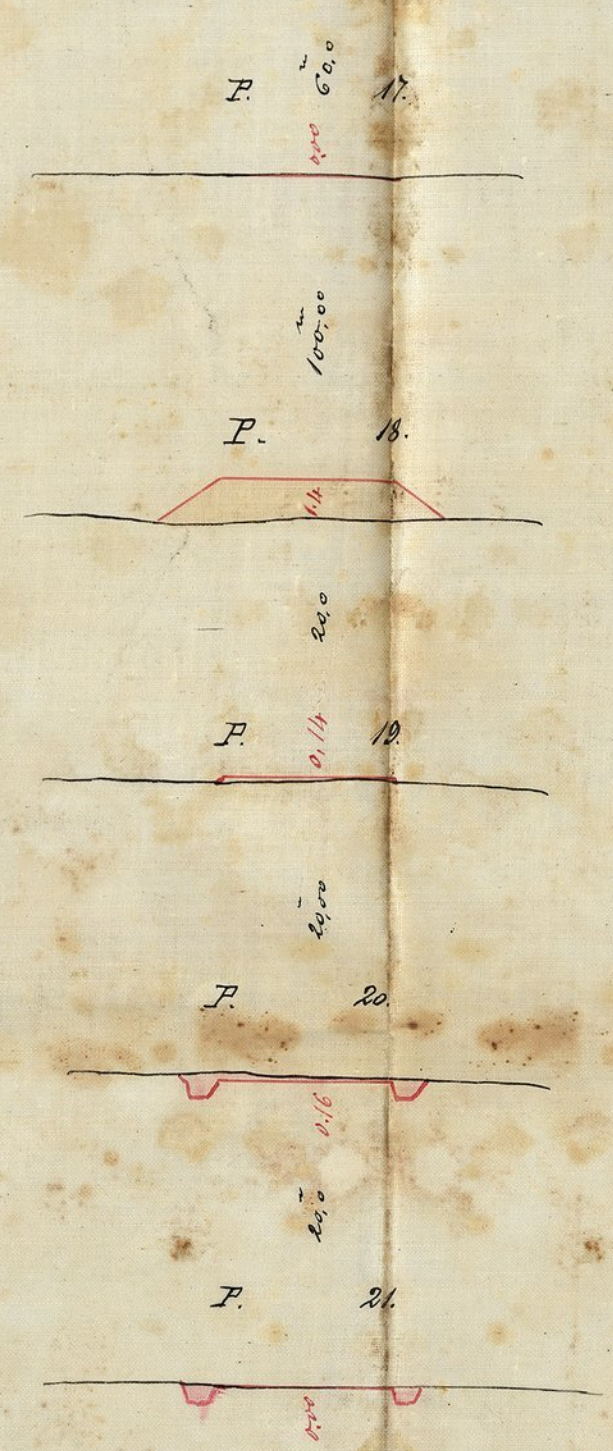 m
60,0
P. 17.
0,00
m
100,00
P. 18.
1.4
20,0
P. 19.
0,14
20,00
P. 20.
0.16
20,0
P. 21.
0,00